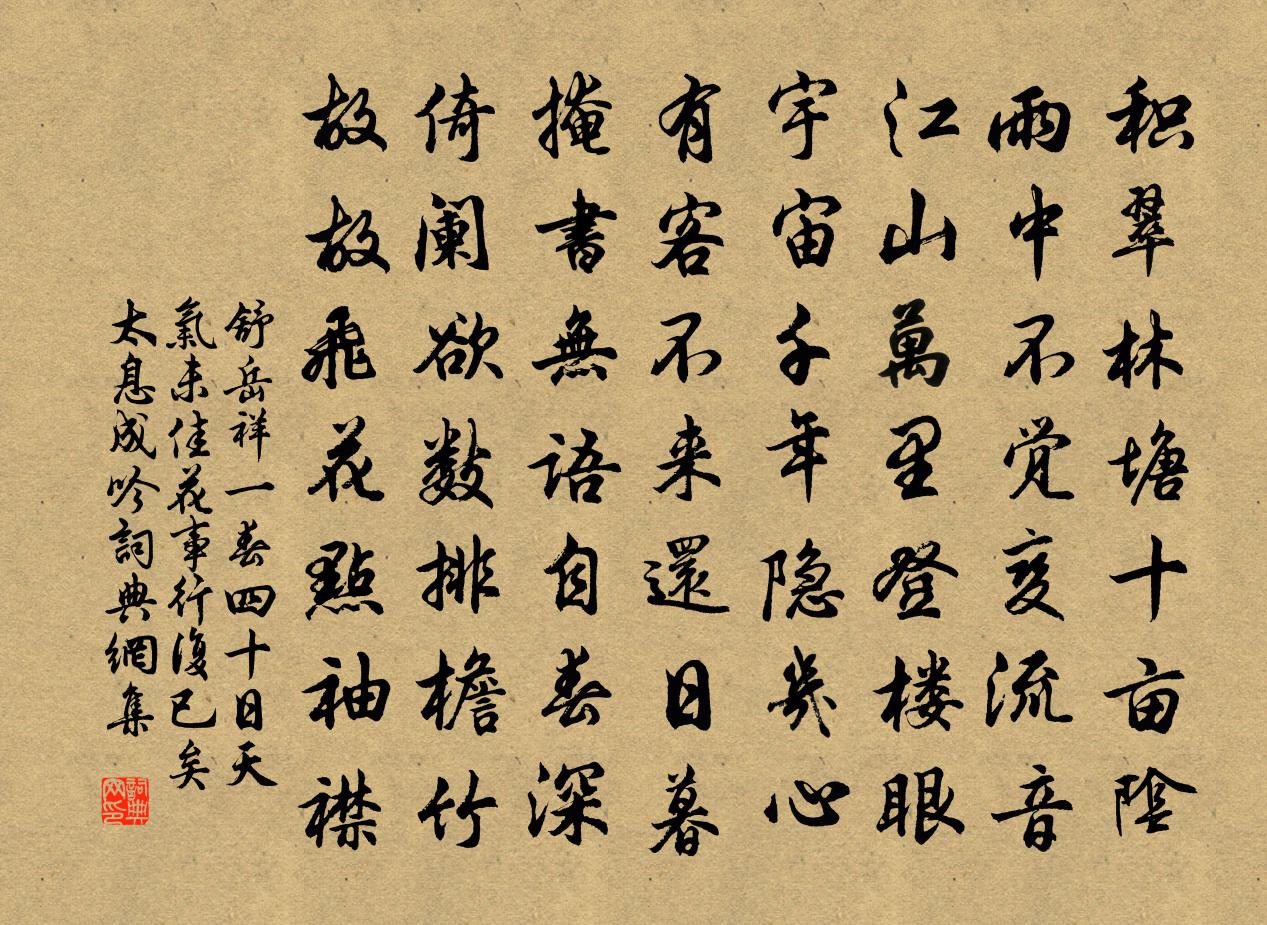 积翠林塘十亩陰
雨中不觉变流音
江山萬里登楼眼
宇宙千年隐幾心
有客不来還日暮
掩書無語自春深
倚阑欲数排檐竹
故故飛花點袖襟
舒岳祥一春四十日天
氣未佳花事行復已矣
太息成吟詞典網集
詞典
网印